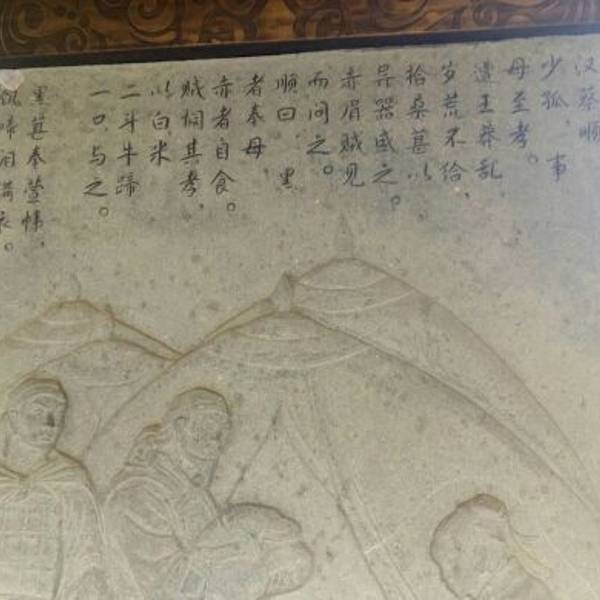 汉蔡顺
少孤，事
母至孝。
遭王莽乱，
岁荒不给，
拾桑葚以
异器盛之。
赤眉贼见
而问之。
顺曰，黑
者奉母，
赤者自食。
贼悯其孝，
以白米
二斗牛蹄
一只与之。
黑葚奉萱帏，
饥啼泪满衣。